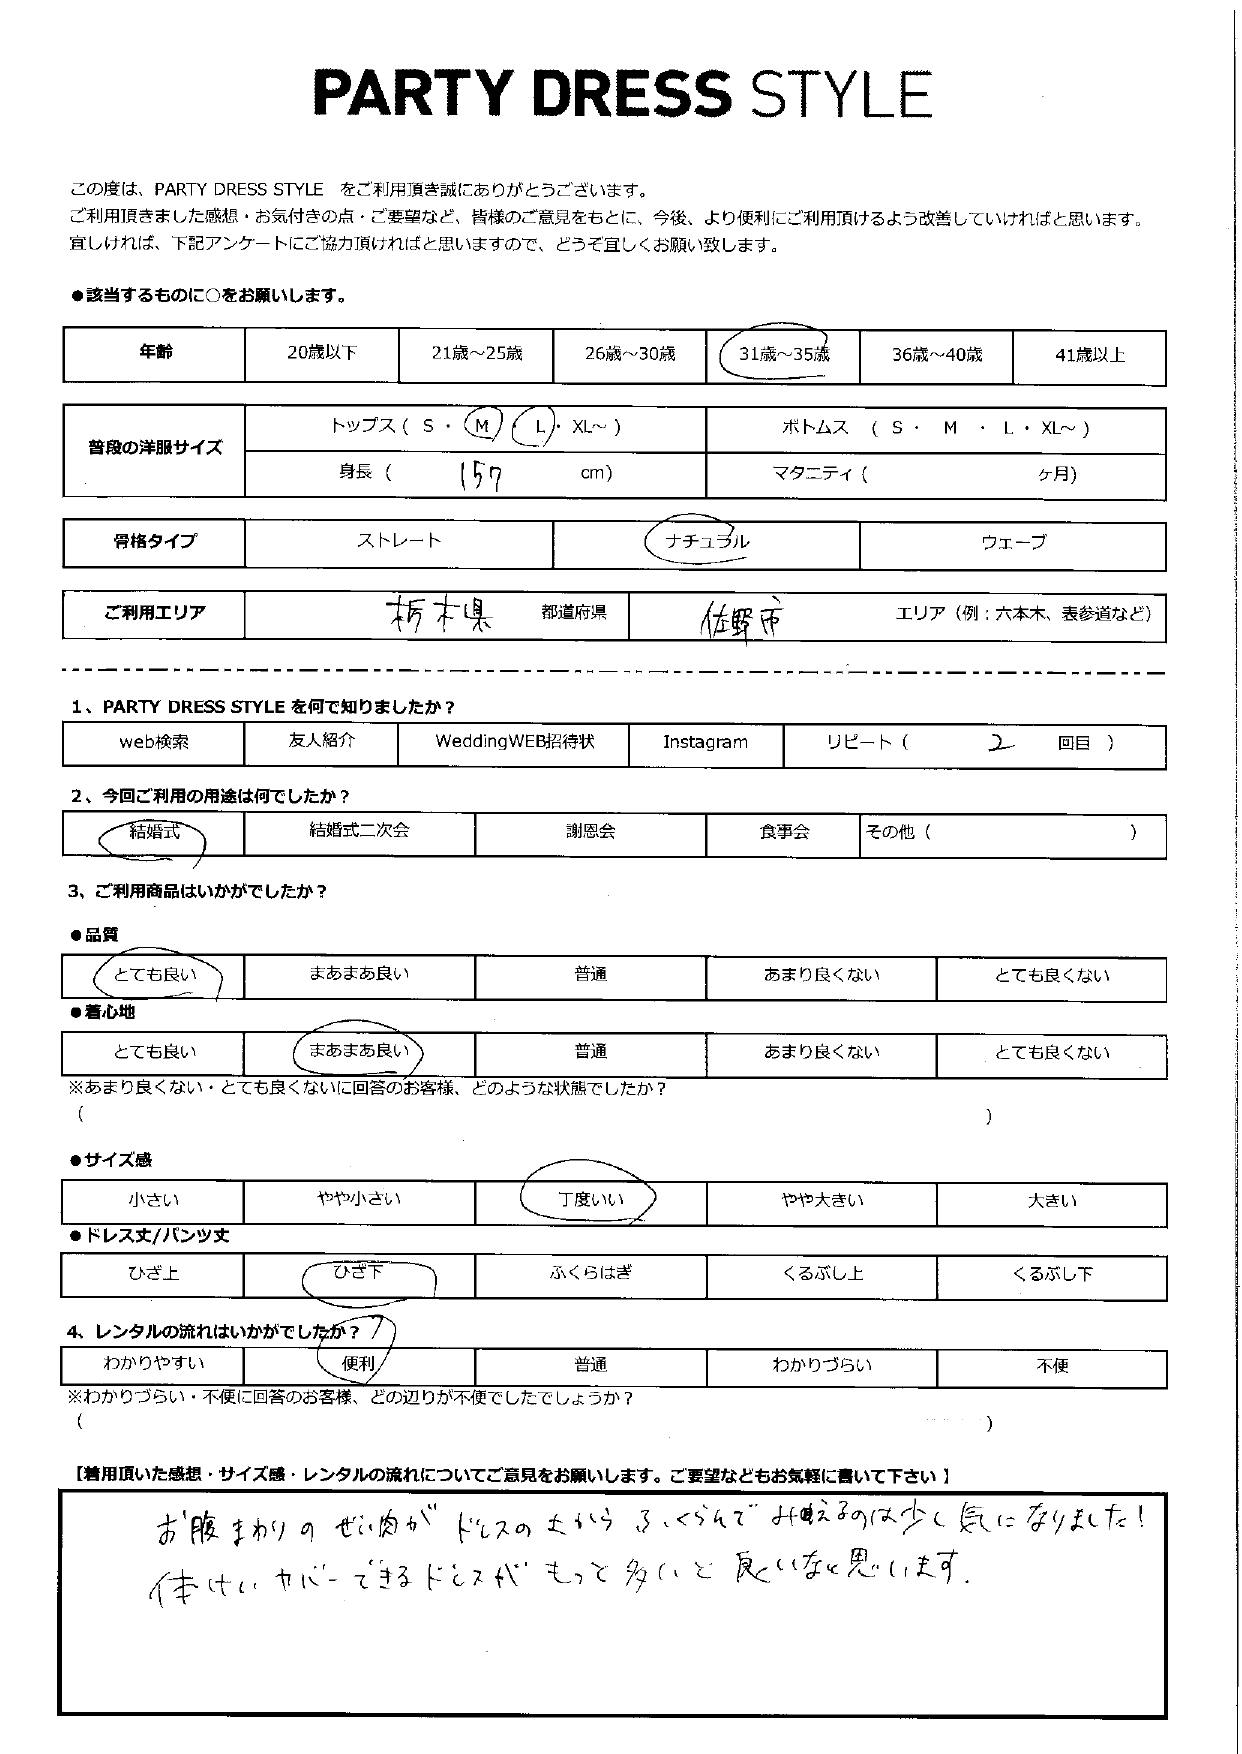 PARTY DRESS STYLE
この度は、PARTY DRESS STYLE をご利用頂き誠にありがとうございます。
ご利用頂きました感想・お気付きの点・ご要望など、皆様のご意見をもとに、今後、より便利にご利用頂けるよう改善していければと思います。
宜しければ、下記アンケートにご協力頂ければと思いますので、どうぞ宜しくお願い致します。
●該当するものに○をお願いします。
年齢 20歳以下 21歳～25歳 26歳～30歳 31歳～35歳 36歳～40歳 41歳以上
普段の洋服サイズ トップス ( S ・ M ・ L ・ XL～ ) ボトムス ( S ・ M ・ L ・ XL～ )
身長 ( 157 cm) マタニティ ( ヶ月)
骨格タイプ ストレート ナチュラル ウェーブ
ご利用エリア 栃木県 都道府県 佐野市 エリア（例：六本木、表参道など）
1、PARTY DRESS STYLE を何で知りましたか？
web検索 友人紹介 WeddingWEB招待状 Instagram リピート ( 2 回目 )
2、今回ご利用の用途は何でしたか？
結婚式 結婚式二次会 謝恩会 食事会 その他 ( )
3、ご利用商品はいかがでしたか？
●品質
とても良い まあまあ良い 普通 あまり良くない とても良くない
●着心地
とても良い まあまあ良い 普通 あまり良くない とても良くない
※あまり良くない・とても良くないに回答のお客様、どのような状態でしたか？
( )
●サイズ感
小さい やや小さい 丁度いい やや大きい 大きい
●ドレス丈/パンツ丈
ひざ上 ひざ下 ふくらはぎ くるぶし上 くるぶし下
4、レンタルの流れはいかがでしたか？
わかりやすい 便利 普通 わかりづらい 不便
※わかりづらい・不便に回答のお客様、どの辺りが不便でしたでしょうか？
( )
【着用頂いた感想・サイズ感・レンタルの流れについてご意見をお願いします。ご要望などもお気軽に書いて下さい】
お腹まわりのぜい肉がドレスの上からふくらんでみ見えるのは少し気になりました!
体けいカバーできるドレスがもっと多いと良いなと思います.